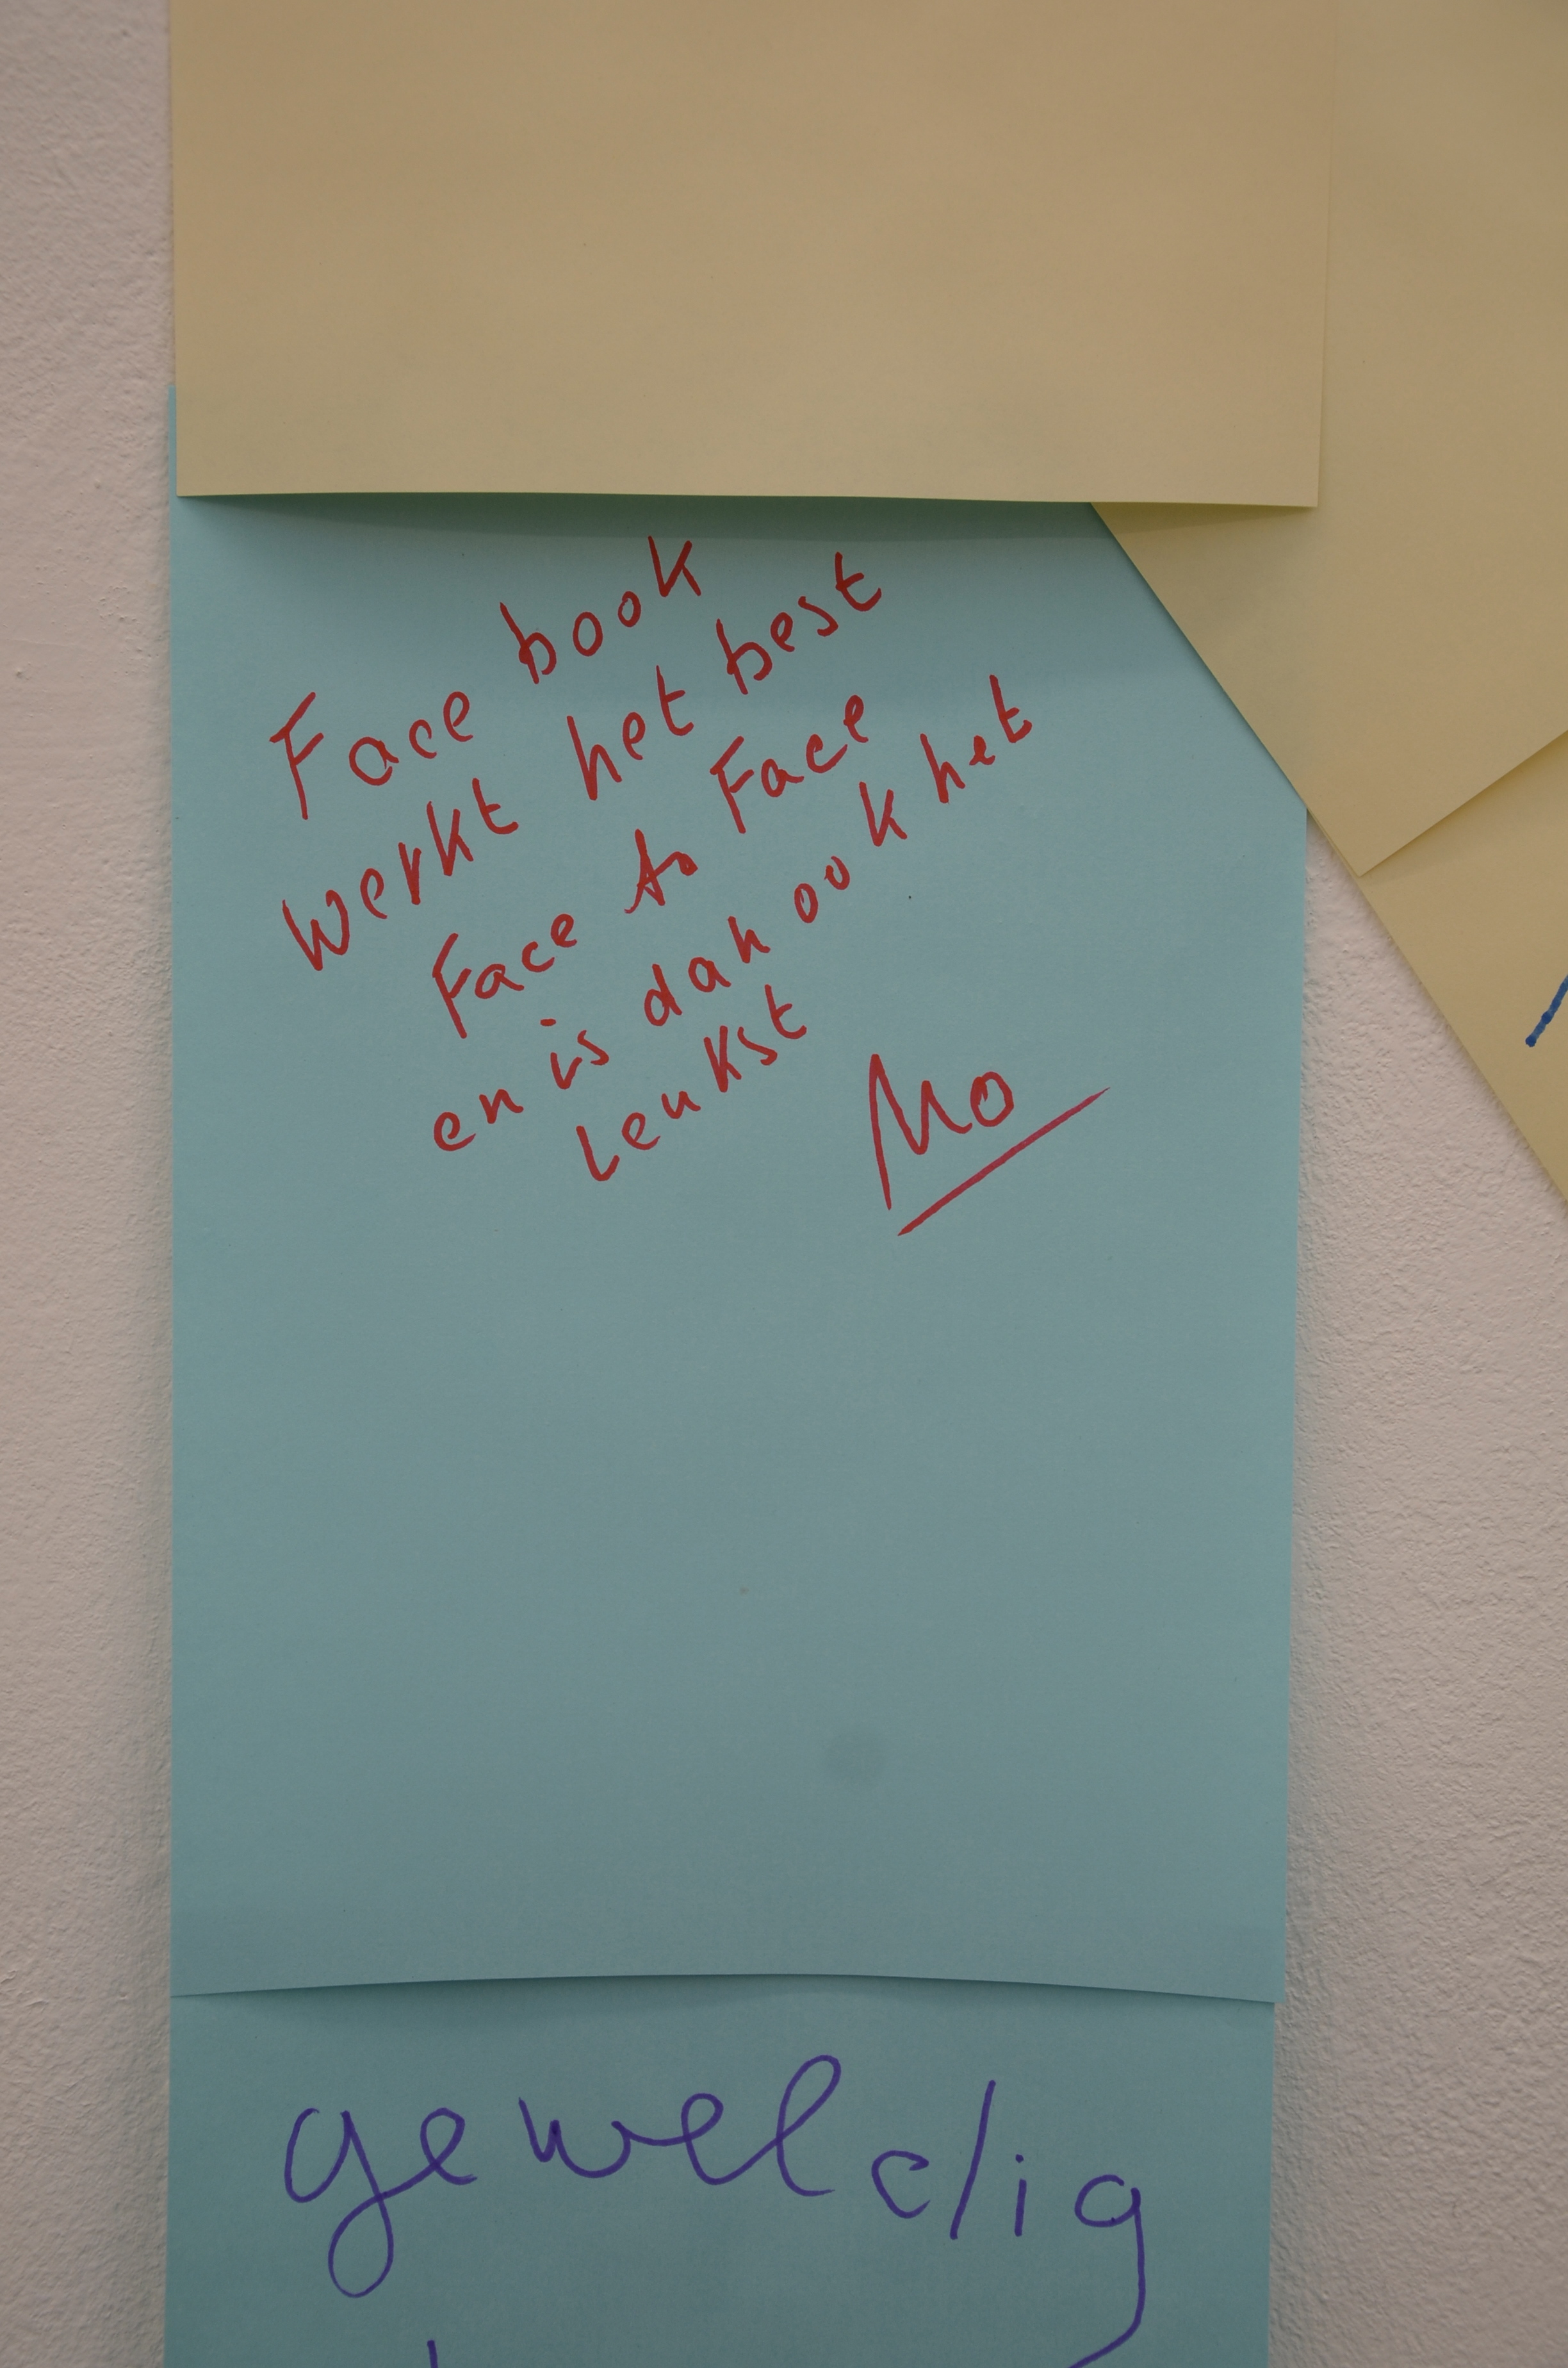 Face book
werkt het best
Face to Face
en is dan ook het
Leukst
Mo
geweldig